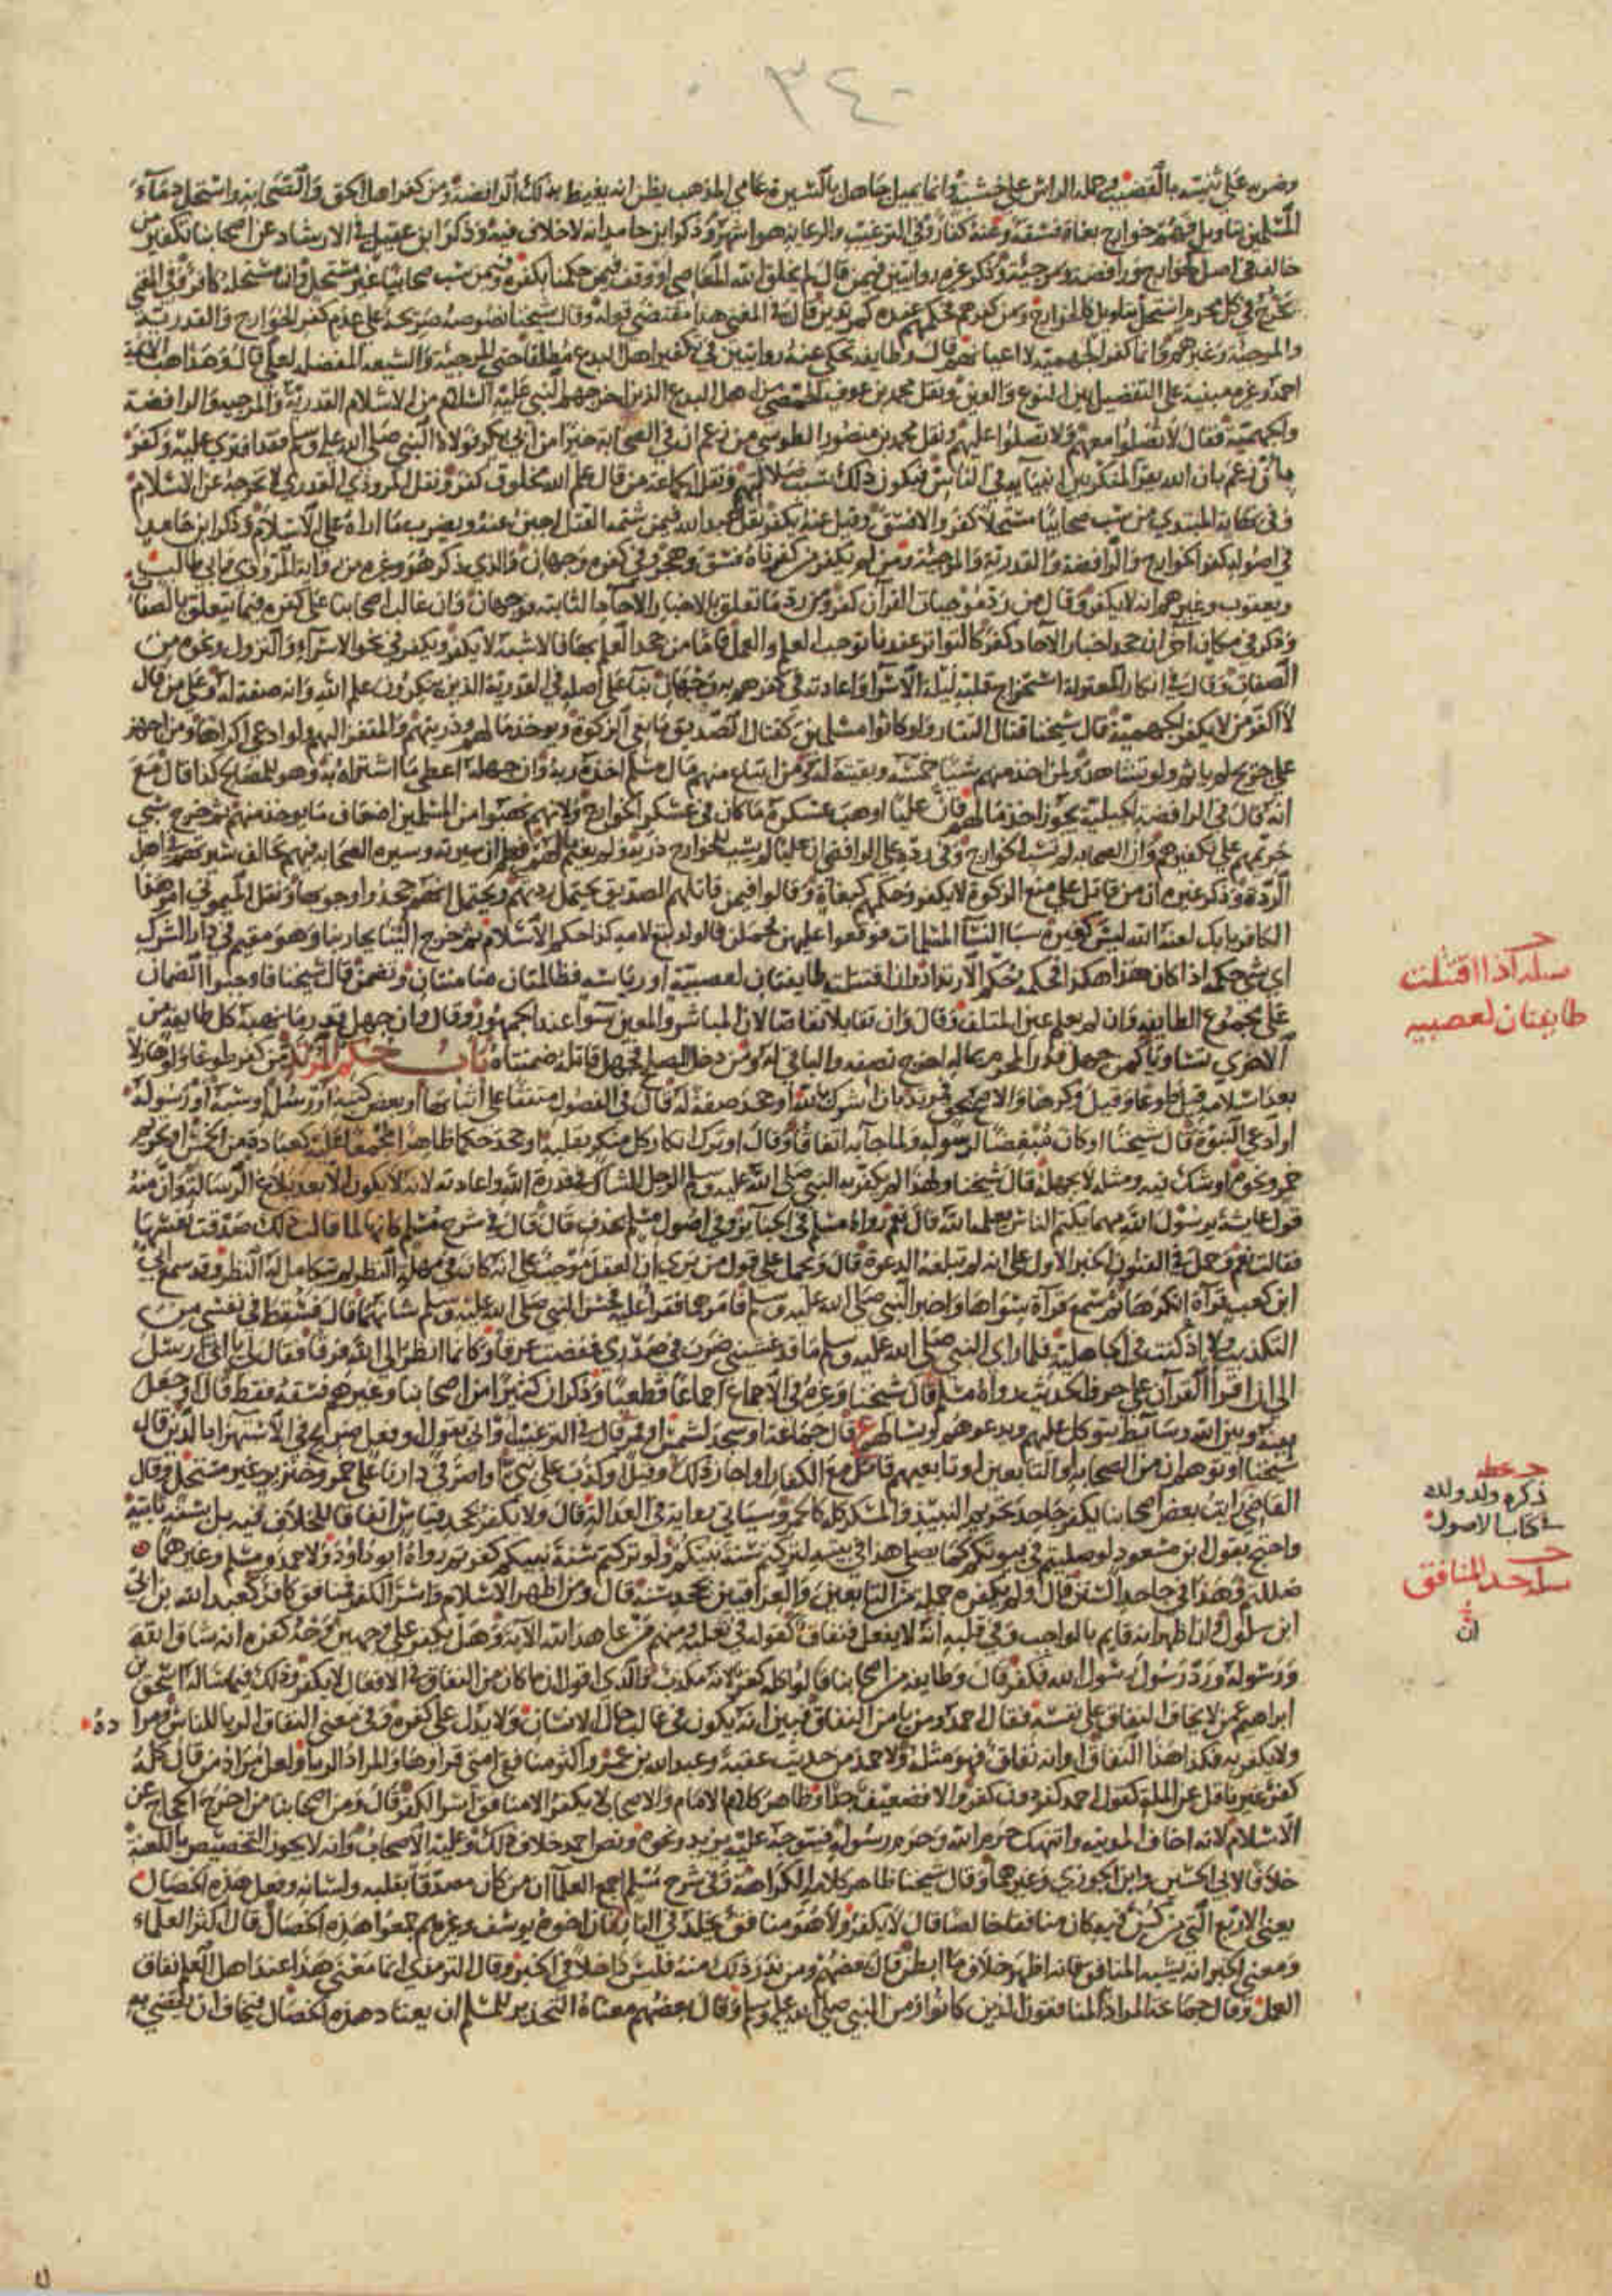 ٣٤٠
وضربه على ثنيته بالقضيب وحمله الراس على خشبة وانما يميل جاهل بالسيرة عامي المذهب يظن انه يغيظ بذلك الرافضة ومن كفر اهل الحق والصحابة واستحل دماء
المسلمين بتاويل فهم خوارج بغاة فسقة وعنه كفار وفي الترغيب والرعاية هو اشهر وذكر ابن حامد انه لا خلاف فيه وذكر ابن عقيل في الارشاد عن اصحابنا تكفير من
خالف في اصل كخوارج وروافضة ومرجئة وذكر غيره روايتين فيمن قال لم يخلق الله المعاصي او وقف فيمن حكمنا بكفره وفيمن سب صحابيا غير مستحل وان مستحله كافر وفي المغني
يخرج في كل محرم استحل بتاويل كالخوارج ومن كفرهم فحكمهم عنده كمرتدين قال في المغني هذا مقتضى قوله وقال شيخنا نصوصه صريحة على عدم كفر الخوارج والقدرية
والمرجئة وغيرهم وانما كفر الجهمية لا اعيانهم قال وطايفة تحكي عنه روايتين في تكفير اهل البدع مطلقا حتى المرجئة والشيعة المفضلة لعلي قال ومذاهب الائمة
احمد وغيره مبنية على التفصيل بين النوع والعين ونقل محمد بن عوف الحمصي من اهل البدع الذين اخرجهم النبي عليه السلام من الاسلام القدرية والمرجية والرافضة
والجهمية فقال لا تصلوا معهم ولا تصلوا عليهم ونقل محمد بن منصور الطوسي من زعم ان في الصحابة خيرا من ابي بكر فولاه النبي صلى الله عليه وسلم فقد افترى عليه وكفر
بان زعم بان الله يقر المنكر بين انبيائه في الناس فيكون ذلك سبب ضلالتهم ونقل الجماعة من قال علم الله مخلوق كفر ونقل المروذي القدري لا نخرجه عن الاسلام
وفي نهاية المبتدي من سب صحابيا مستحلا كفر والا فسق وقيل عنه يكفر نقل عبد الله فيمن شتم القتل اجبن عنه ويضرب ما اراه على الاسلام وذكر ابن حامد
في اصوله كفر الخوارج والرافضة والقدرية والمرجئة ومن لم يكفر من كفرناه فسق وهجر وفي كفره وجهان والذي ذكر هو وغيره من رواية المروذي وابي طالب
ويعقوب وغيرهم انه لا يكفر وقال من رد موجبات القرآن كفر ومن رد ما تعلق بالاخبار الآحاد الثابتة فوجهان وان غالب اصحابنا على كفره فيما يتعلق بالصفات
وذكر في مكان آخر ان جحد اخبار الآحاد كفر كالتواتر عندنا توجب العلم والعمل فاما من جحد العلم بها فالاشبه لا يكفر ويكفر في نحو الاسراء والنزول ونحوه من
الصفات وقال في انكار المعتزلة استخراج قلبه ليلة الاسرا واعادته في كفرهم به وجهان بنا على اصله في القدرية الذين ينكرون علم الله وانه صفة له وعلى من قال
لا اكفر من لا يكفر الجهمية قال شيخنا قتال التتار ولو كانوا مسلمين كقتال الصديق مانعي الزكوة ويوخذ مالهم وذريتهم والمقفز اليهم لو ادعى اكراها ومن اجهز
على جريح لم ياثم ولو تشاهد ومن اخذ منهم شيئا خمسه وبقيته له ومن ابتاع منهم مال مسلم اخذه ربه وان جهله اعطى ما اشتراه به وهو للمصالح كذا قال مع
انه قال في الرافضة الجبلية يجوز اخذ مالهم فان عليا اوهب عسكره ما كان في عسكر الخوارج ولانهم نهبوا من المسلمين اضعاف ما يوخذ منهم ثم خرج سبي
حريمهم على تكفيرهم وان الصحابة لم تسب الخوارج وفي رده على الرافضي ان عليا لم يسب للخوارج ذرية ولم يغنم مالهم فعلم ان سيرته وسيرة الصحابة فيهم يخالف سيرتهم في اهل
الردة وذكر غيره ان من قاتل على منع الزكوة لا يكفر وحكمهم كبغاة وقالوا فيمن قاتلهم الصديق يحتمل ردتهم ويحتمل انهم جحدوا وجوبها ونقل الميموني امر هذا
الكافر بابك لعنه الله ليس كغيره سبا النسا المسلمات فوقعوا عليهن فحملن فالولد تبع لامه كذا حكم الاسلام ثم خرج الينا يحاربنا وهو مقيم في دار الشرك
اي شي حكمه اذا كان هذا هكذا فحكمه حكم الارتداد وان اقتتلت طايفتان لعصبية او رياسة فظالمتان ضامنتان وتضمن قال شيخنا فاوجبوا الضمان
على مجموع الطايفة وان لم يعلم عين المتلف وقال وان تقابلا تقاصا لان المباشر والمعين سوا عند الجمهور وقال وان جهل قدر ما نهبه كل طايفة من
الاخرى تساويا كمن جهل قدر المحرم بماله اخرج نصفه والباقي له ومن دخل لصلح فجهل قاتله ضمنتاه باب حكم المرتد من كفر طوعا ولو هازلا
بعد اسلامه قيل طوعا وقيل وكرها والاصح بحق فمرتد بان اشرك بالله او جحد صفة له قال في الفصول متفقا على اثباتها او بعض كتبه او رسله او سبه او رسوله
او ادعى النبوة قال شيخنا او كان مبغضا لرسوله ولما جآء به اتفاقا وقال او ترك انكار كل منكر بقلبه او جحد حكما ظاهرا مجمعا عليه كعبادة من الخمس او تحريم
خمر ونحوه او شك فيه ومثله لا يجهله قال شيخنا ولهذا لم يكفر به النبي صلى الله عليه وسلم الرجل الشاك في قدرة الله واعادته لانه لا يكون الا بعد بلاغ الرسالة وان منه
قول عايشة يرسول الله مهما يكتم الناس يعلمه الله قال نعم رواه مسلم في الجنايز وفي اصول مسلم بحذف قال قال في شرح مسلم كانها لما قالت ذلك صدقت نفسها
فقالت نعم وحمل في الفنون الخبر الاول على انه لم تبلغه الدعوة قال ويحمل على قول من يرى ان العقل موجب على انه كان في مهلة النظر لم يتكامل له النظر وقد سمع ابي
ابن كعب قرآة انكرها ثم سمع قرآة سواها واخبر النبي صلى الله عليه وسلم فامرهما فقرا عليه فحسن النبي صلى الله عليه وسلم شانهما قال فسقط في نفسي من
التكذيب ولا اذ كنت في الجاهلية فلما راى النبي صلى الله عليه وسلم ما قد غشيني ضرب في صدري ففضت عرقا وكانما انظر الى الله فرقا فقال لي يا ابي ارسل
الي ان اقرا القرآن على حرف الحديث رواه مسلم قال شيخنا وغيره في الاجماع اجماعا قطعيا وذكر ان كثيرا من اصحابنا وغيرهم فسقه فقط قال او جعل
بينه وبين الله وسائط يتوكل عليهم ويدعوهم ويسألهم ع قال جماعة او سجد لشمس او قمر قال في الترغيب او اتى بقول او فعل صريح في الاستهزا بالدين قال
شيخنا او توهم ان من الصحابة او التابعين او تابعيهم قاتل مع الكفار او اجاز ذلك وقيل او كذب على نبي او اصر في دارنا على خمر وخنزير غير مستحل وقال
القاضي رايت بعض اصحابنا يكفر جاحد تحريم النبيذ والمسكر كله كالخمر وسياتي رواية في العدالة قال ولا نكفر بجحد قياس اتفاقا للخلاف فيه بل سنة ثابتة
واحتج بقول ابن مسعود لو صليتم في بيوتكم كما يصلي هذا في بيته لتركتم سنة نبيكم ولو تركتم سنة نبيكم كفرتم رواه ابو داود ولاحمد ومسلم وغيرهما
ضللتم وهذا في جاحد السنن قال ولم يكفره جملة من التابعين والعراقيين بجحد سنة قال ومن اظهر الاسلام واسر الكفر فمنافق كافر كعبد الله بن ابي
ابن سلول وان اظهر انه قايم بالواجب وفي قلبه انه لا يفعل فنفاق كقوله في ثعلبة ومنهم من عاهد الله الآية وهل يكفر على وجهين وجه كفره انه شاق الله
ورسوله ورد رسول يرسول الله فيكفر قال وطايفة من اصحابنا قالوا ظاهره كفر لانه مكذب والذي اقول ان ما كان من النفاق في الافعال لا يكفر وذلك فيما ساله اسحق بن
ابراهيم عمن لا يخاف النفاق على نفسه فقال احمد ومن يامن النفاق فبين انه يكون في غالب حال الانسان ولا يدل على كفره وفي معنى النفاق الريا للناس ومرا
ده
ولا يكفر به فكذا هذا النفاق وانه نفاق فهو مثله ولاحمد من حديث عقبة وعبد الله بن عمرو اكثر منافقي امتي قراوها والمراد الريا ولعل مراد من قال كله
كفر غير ناقل عن الملة كقول احمد كفر دون كفر والا فضعيف جدا وظاهر كلام الامام والاصحاب لا يكفر الا منافق اسر الكفر قال ومن اصحابنا من اخرج الحجاج عن
الاسلام لانه اخاف المدينة وانتهك حرم الله وحرم رسوله فيتوجه عليه يزيد ونحوه ونص احمد خلاف ذلك وعليه الاصحاب وانه لا يجوز التخصيص باللعنة
خلافا لابي الحسين وابن الجوزي وغيرهما وقال شيخنا ظاهر كلامه الكراهة وفي شرح مسلم اجمع العلماء ان من كان مصدقا بقلبه ولسانه وفعل هذه الخصال
يعني الاربع التي من كن فيه كان منافقا خالصا قال لا يكفر ولا هو منافق يخلد في النار فان اخوة يوسف وغيرهم جمعوا هذه الخصال قال اكثر العلماء
ومعنى الخبر انه يشبه المنافق فانه اظهر خلاف ما ابطن قال بعضهم ومن ندر ذلك منه فليس داخلا في الخبر وقال الترمذي انما معنى هذا عند اهل العلم نفاق
العمل وقال جماعة المراد المنافقون الذين كانوا زمن النبي صلى الله عليه وسلم وقال بعضهم معناه التحذير للمسلم ان يعتاد هذه الخصال فيخاف ان يفضي به
اذا اقتتلت
طايفتان لعصبية
ذكره ولد ولده
في كتاب الاصول
حد المنافق
ان